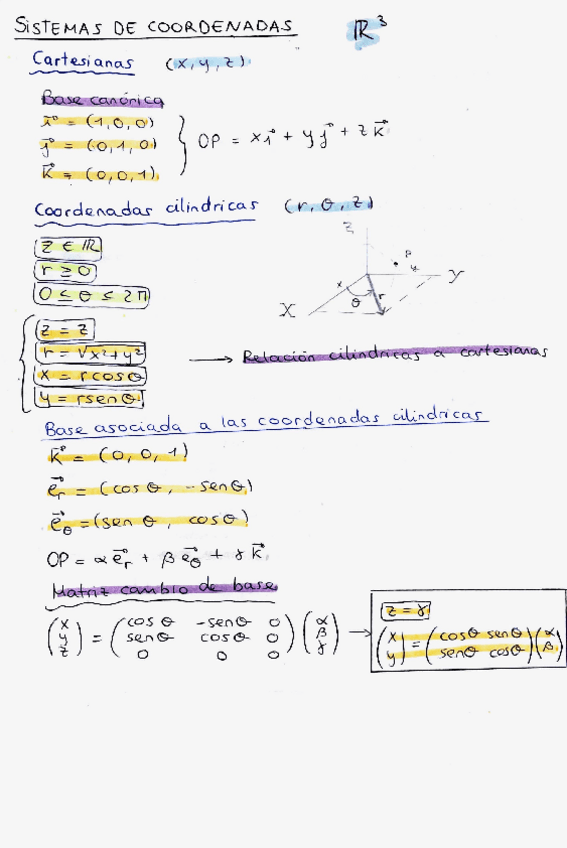 SISTEMAS DE COORDENADAS ℝ³
Cartesianas (x, y, z)
Base canónica
i⃗ = (1, 0, 0)
j⃗ = (0, 1, 0)
k⃗ = (0, 0, 1)
} OP = x i⃗ + y j⃗ + z k⃗
Coordenadas cilindricas (r, θ, z)
z ∈ ℝ
r ≥ 0
0 ≤ θ ≤ 2π
Z
P
X
Y
x
y
θ
r
z = z
r = √x²+y²
x = r cos θ
y = r sen θ
→ Relación cilindricas a cartesianas
Base asociada a las coordenadas cilindricas
k⃗ = (0, 0, 1)
e⃗r = (cos θ, -sen θ)
e⃗θ = (sen θ, cos θ)
OP = α e⃗r + β e⃗θ + γ k⃗
Matriz cambio de base
(x y z) = (cos θ -sen θ 0
sen θ cos θ 0
0 0 0) (α β γ) →
z = γ
(x y) = (cos θ sen θ
sen θ cos θ) (α β)